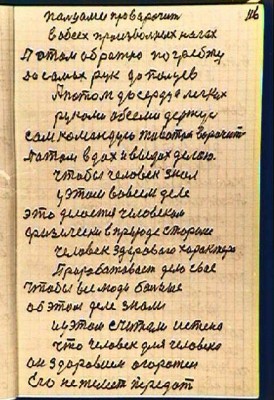 116
пальцами проворочит
в обеих произвольных нагах
Потом обратно по гребжу
до самых рук до пальцев
А потом до сердца легких
руками обеими держу
сам командую живот вворочит
Патом вдох и выдах делаю
чтобы человек знал
у этом во всем деле
это делается человеком
физически в природе стороне
человек здорового характера
Проповаживает дело свое
чтобы все люди больше
об этом деле знали
и у этом считали истена
что человек для человека
он здоровием огорожен
Его не желает передать